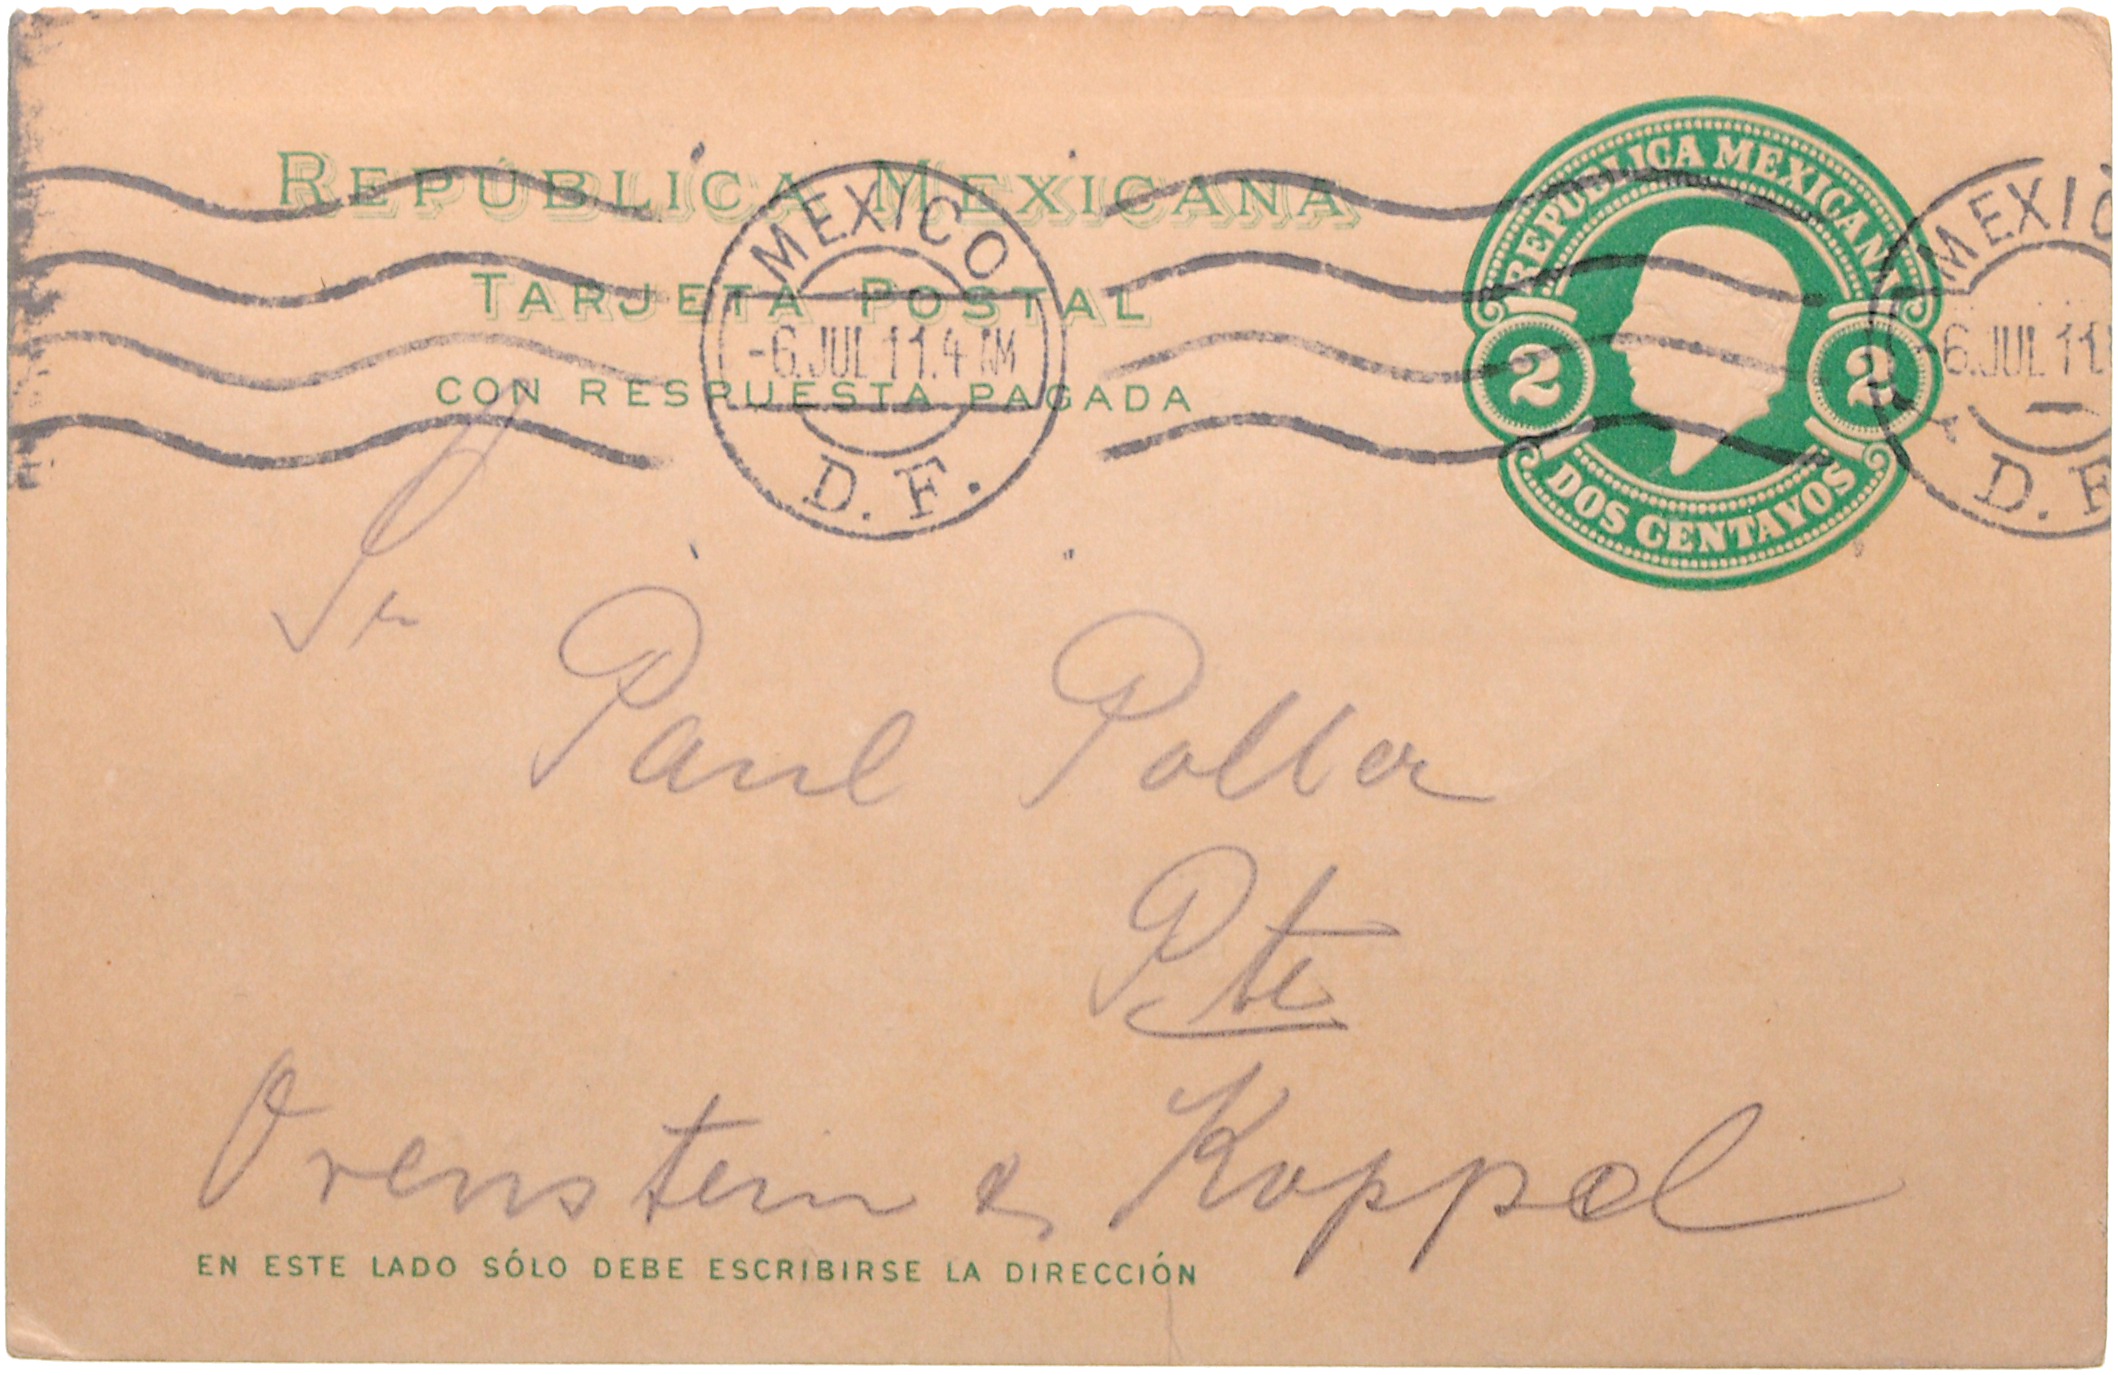 REPÚBLICA MEXICANA
TARJETA POSTAL
CON RESPUESTA PAGADA
MEXICO
-6.JUL.11.4
D. F.
REPUBLICA MEXICANA
2 2
DOS CENTAVOS
MEXIC
6.JUL.11.
D. F
Sr
Paul Poller
Pte
Orenstein & Koppel
EN ESTE LADO SÓLO DEBE ESCRIBIRSE LA DIRECCIÓN